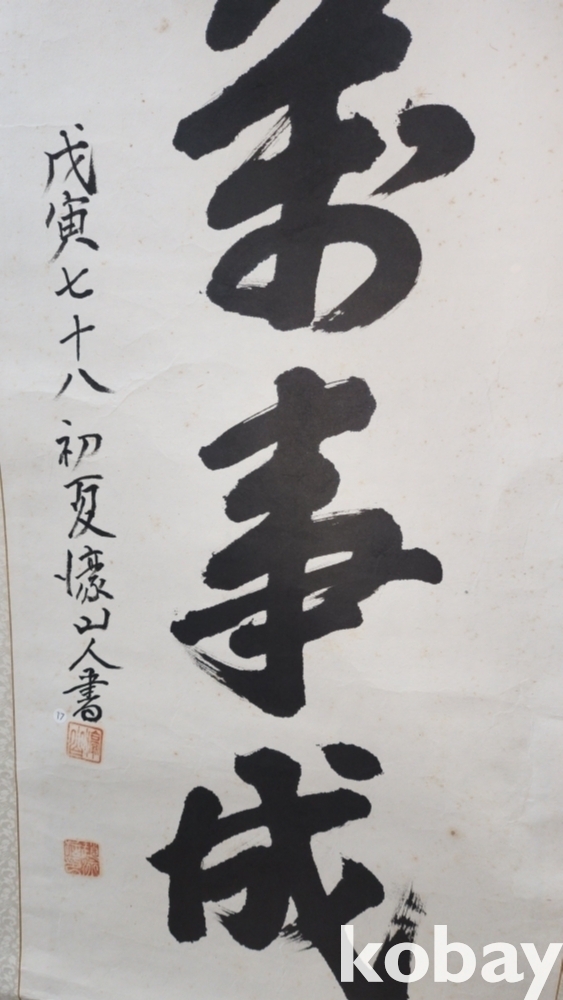 萬事成
戊寅七十八初夏濠山人書
17
kobay